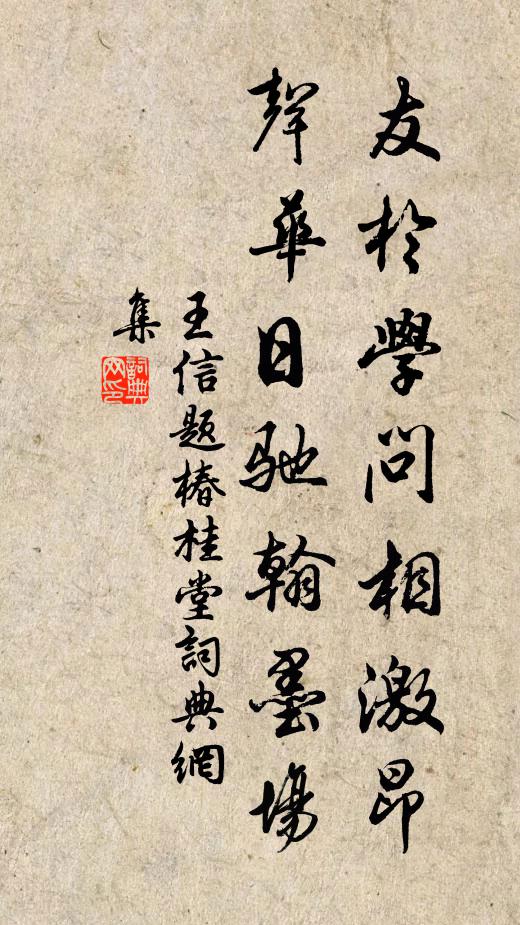 友於學問相激昂
聲華日馳翰墨場
王信題椿桂堂詞典網
集
詞典
网印